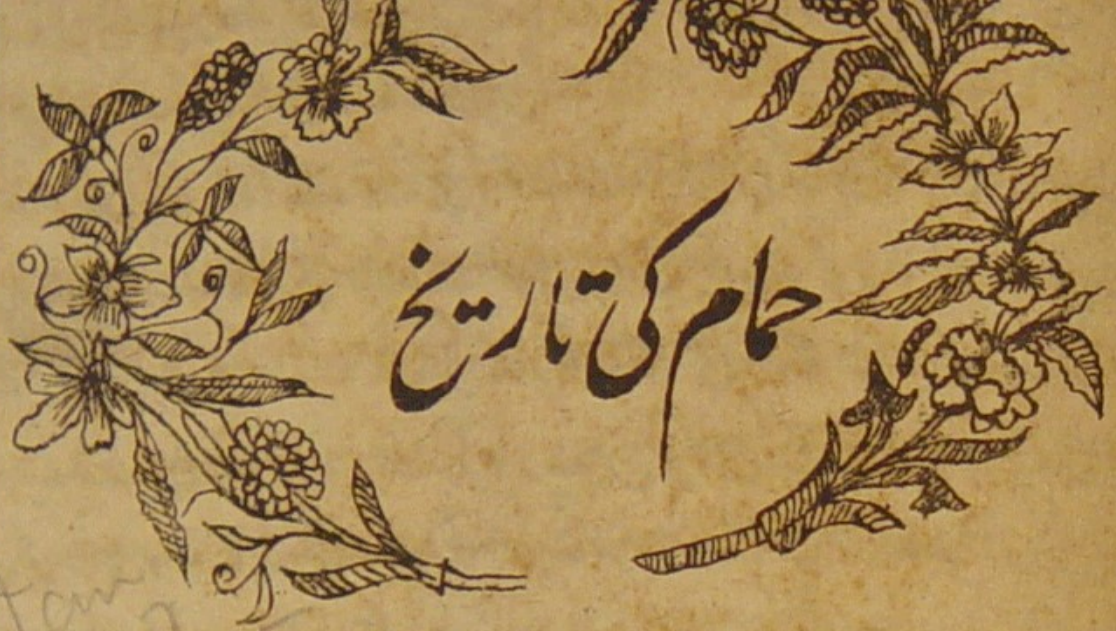 حمام کی تاریخ